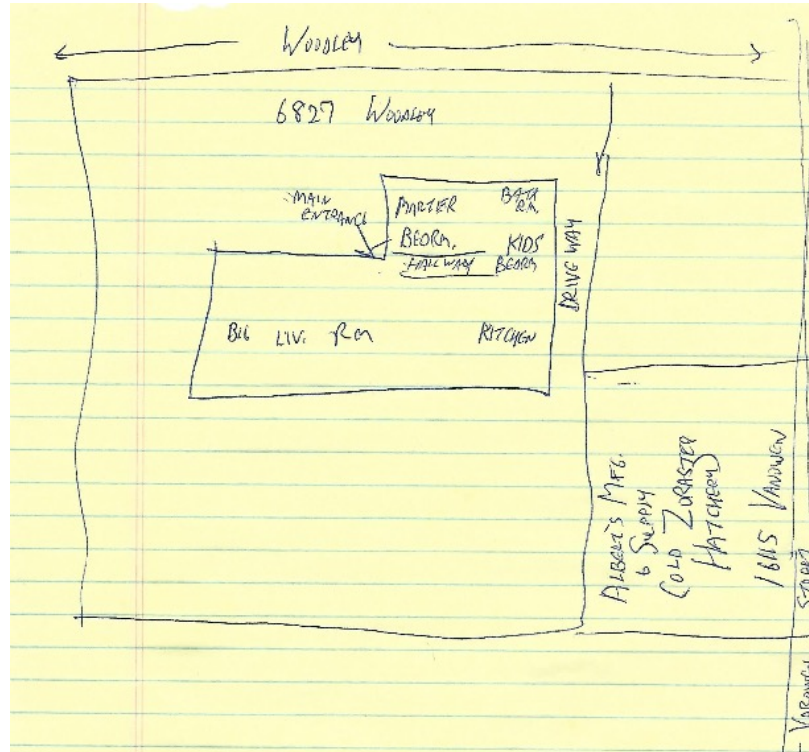 WOODLEY
6827 WOODLEY
MAIN
ENTRANCE
MASTER
BEDRM.
BATH
RM.
KIDS
BEDRM
HALLWAY
DRIVE WAY
BIG LIV. RM
KITCHEN
ALBERT'S MFG.
& SUPPLY
(OLD ZORASTER
HATCHERY
16115 VANOWEN
VANOWEN